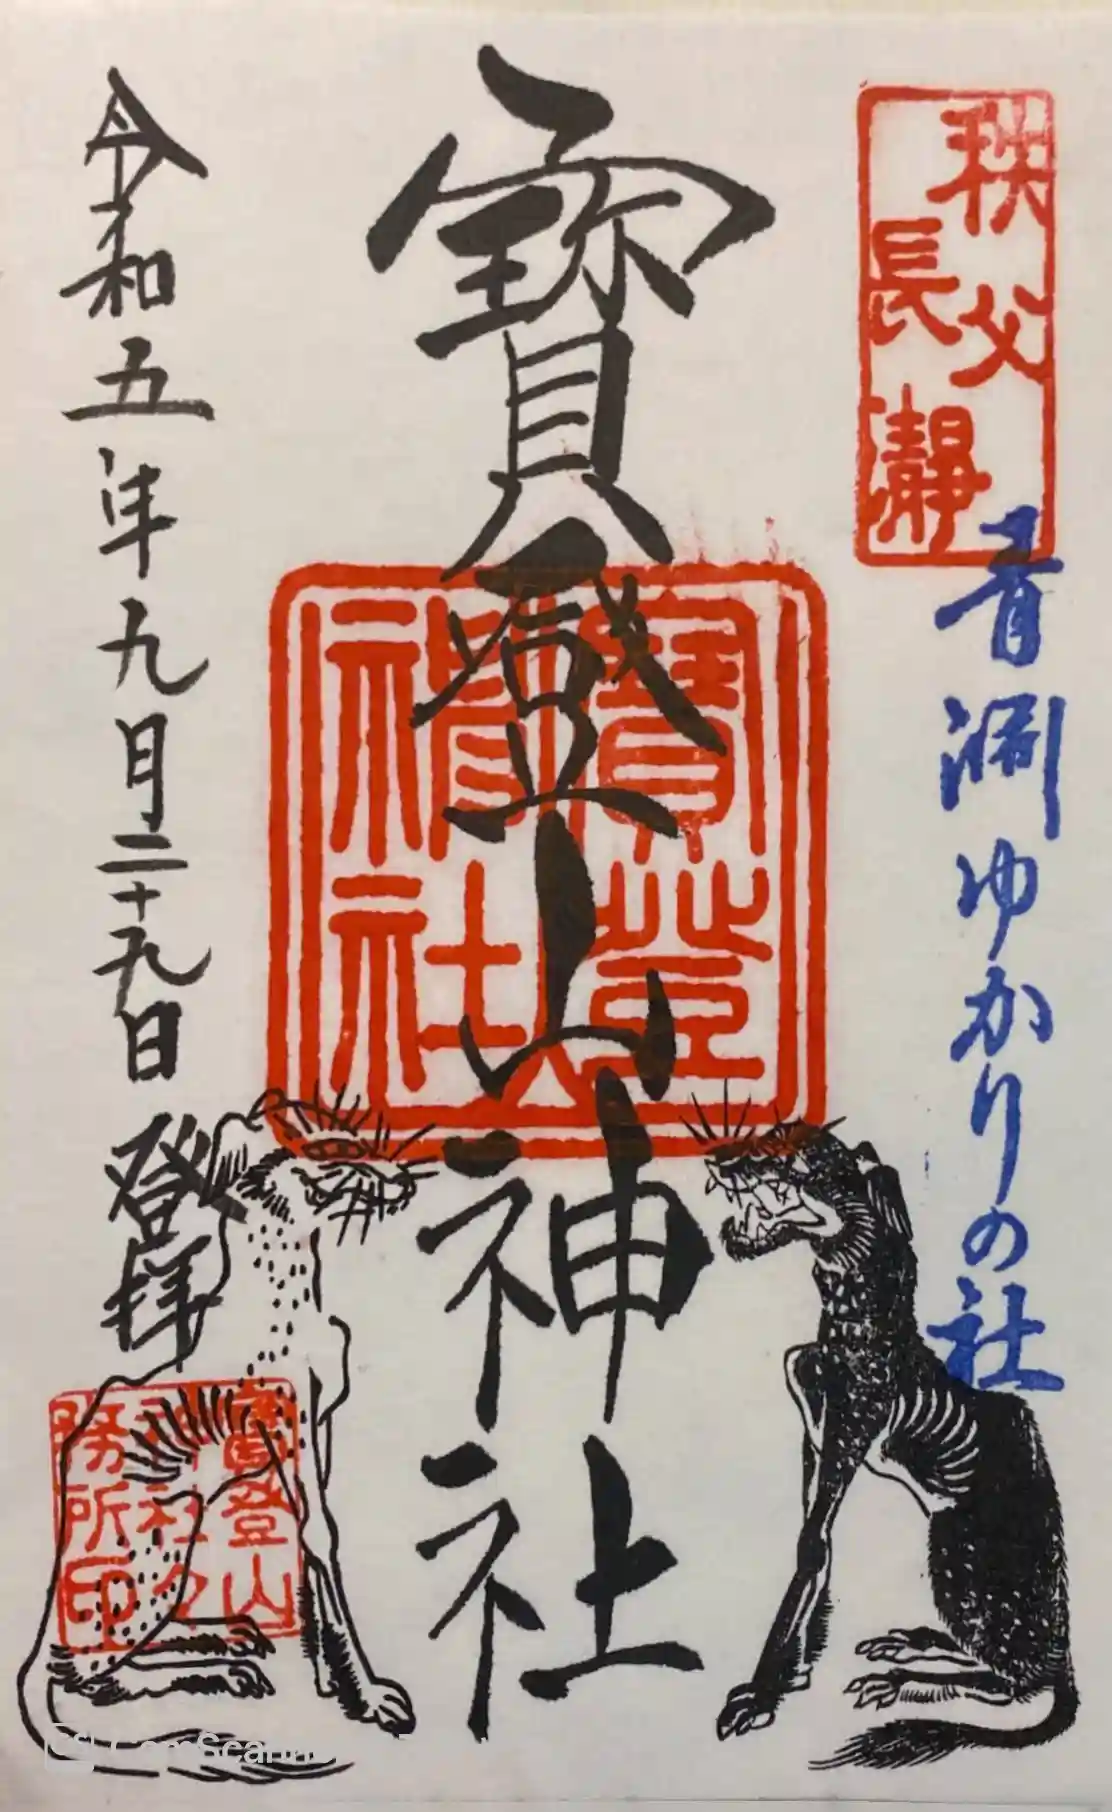 秩父
長瀞
青淵ゆかりの社
寳登山神社
寳登山神社
令和五年九月二十九日
登拝
寳登山
神社之
務所印
CamScanner